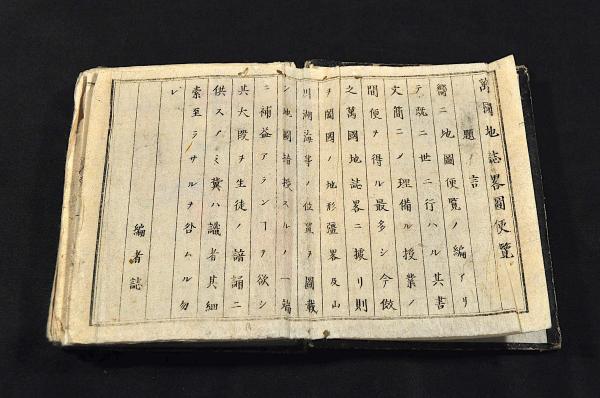 萬國地誌畧圖便覧
題言
嚮ニ地圖便覧ノ編アリ
テ既ニ世ニ行ハル其書
文簡ニノ理備ル授業ノ
間便ヲ得ル最多シ今倣
之萬國地誌畧ニ據リ則
ヲ闔國ノ地形疆畧及山
川湖海等ノ位置ヲ圖載
シ地圖諳授スルノ一端
ニ補益アランヿヲ欲シ
其大段ヲ生徒ノ諳誦ニ
供スノミ冀ハ識者其細
索至ラサルヲ咎ムル勿
レ
編者誌